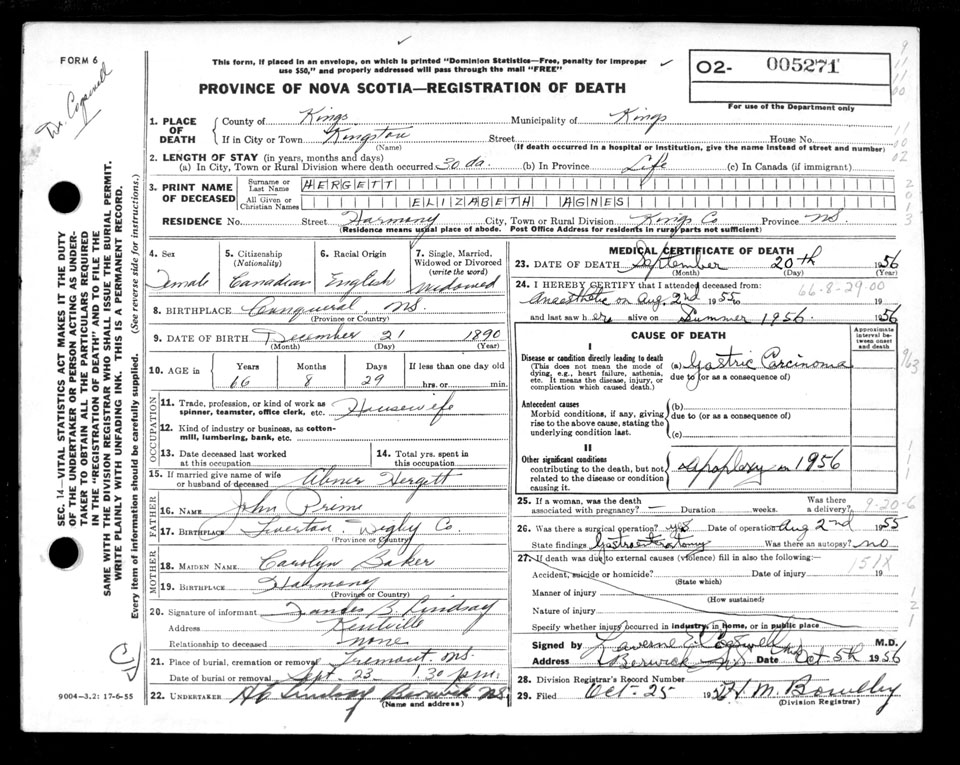 FORM 6
Dr. Cogswell
This form, if placed in an envelope, on which is printed "Dominion Statistics—Free, penalty for improper
use $50," and properly addressed will pass through the mail "FREE"
O2- 005271
PROVINCE OF NOVA SCOTIA—REGISTRATION OF DEATH
For use of the Department only
1. PLACE OF DEATH
County of Kings Municipality of Kings
If in City or Town Kingston Street House No.
(Name) (If death occurred in a hospital or institution, give the name instead of street and number)
2. LENGTH OF STAY (in years, months and days)
(a) In City, Town or Rural Division where death occurred 30 da. (b) In Province Life (c) In Canada (if immigrant)
3. PRINT NAME OF DECEASED
Surname or Last Name HERGETT
All Given or Christian Names ELIZABETH AGNES
RESIDENCE No. Street Harmony City, Town or Rural Division Kings Co Province N.S.
(Residence means usual place of abode. Post Office Address for residents in rural parts not sufficient)
4. Sex Female
5. Citizenship (Nationality) Canadian
6. Racial Origin English
7. Single, Married, Widowed or Divorced (write the word) Widowed
8. BIRTHPLACE Conquerall, N.S.
(Province or Country)
9. DATE OF BIRTH December 21 1890
(Month) (Day) (Year)
10. AGE in Years Months Days If less than one day old
66 8 29 hrs. or min.
OCCUPATION
11. Trade, profession, or kind of work as spinner, teamster, office clerk, etc. Housewife
12. Kind of industry or business, as cotton-mill, lumbering, bank, etc.
13. Date deceased last worked at this occupation
14. Total yrs. spent in this occupation
15. If married give name of wife or husband of deceased Abner Hergett
FATHER
16. Name John Prime
17. Birthplace Tiverton, Digby Co
(Province or Country)
MOTHER
18. Maiden Name Carolyn Baker
19. Birthplace Harmony
(Province or Country)
20. Signature of informant B. Lindsay
Address Kentville
Relationship to deceased none
21. Place of burial, cremation or removal Tremont N.S.
Date of burial or removal Sept-23- 1.30 p.m.
22. Undertaker Lindsay Berwick N.S.
(Name and address)
MEDICAL CERTIFICATE OF DEATH
23. DATE OF DEATH September 20th 1956
(Month) (Day) (Year)
24. I HEREBY CERTIFY that I attended deceased from: 66-8-29-00
Anaesthetic on Aug. 2nd 1955 to 19
and last saw her alive on Summer 1956. 1956
CAUSE OF DEATH
Approximate interval between onset and death
I
Disease or condition directly leading to death
(This does not mean the mode of dying, e.g., heart failure, asthenia, etc. It means the disease, injury, or complication which caused death.)
(a) Gastric Carcinoma
due to (or as a consequence of)
Antecedent causes
Morbid conditions, if any, giving rise to the above cause, stating the underlying condition last.
(b)
due to (or as a consequence of)
(c)
II
Other significant conditions
contributing to the death, but not related to the disease or condition causing it.
Apoplexy in 1956
25. If a woman, was the death associated with pregnancy? — Duration weeks. Was there a delivery?
9-20-6
26. Was there a surgical operation? yes Date of operation Aug 2nd 1955
State findings Gastroenterotomy Was there an autopsy? no
27. If death was due to external causes (violence) fill in also the following:—
151X
Accident, suicide or homicide? Date of injury 19
(State which)
Manner of injury
(How sustained)
Nature of injury
Specify whether injury occurred in industry, in home, or in public place
Signed by Laverne C. Cogswell M.D.
Address Berwick N.S. Date Oct 5th 1956
28. Division Registrar's Record Number
29. Filed Oct-25 195 H. M. Bowlby
(Division Registrar)
SEC. 14—VITAL STATISTICS ACT MAKES IT THE DUTY
OF THE UNDERTAKER OR PERSON ACTING AS UNDER-
TAKER TO OBTAIN ALL THE PARTICULARS REQUIRED
IN THE "REGISTRATION OF DEATH" AND TO FILE THE
SAME WITH THE DIVISION REGISTRAR WHO SHALL ISSUE THE BURIAL PERMIT.
WRITE PLAINLY WITH UNFADING INK. THIS IS A PERMANENT RECORD.
Every item of information should be carefully supplied. (See reverse side for instructions.)
9004-3.2: 17-6-55